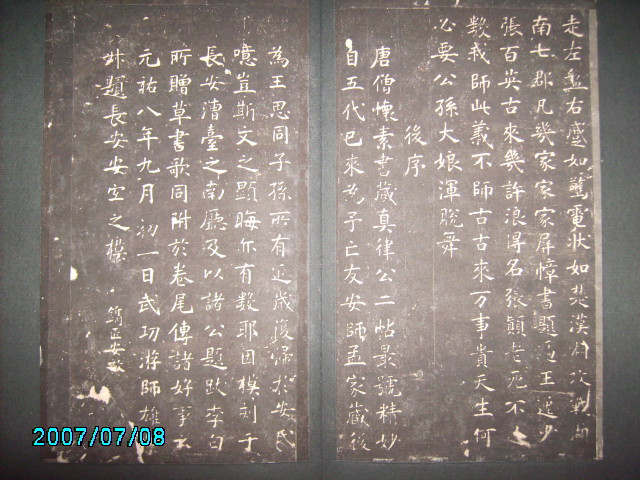 走左盤右蹙如驚電狀如楚漢相攻戰湖
南七郡凡幾家家家屏幛書題遍王逸少
張百英古來幾許浪得名張顛老死不
數我師此義不師古古來万事貴天生何
必要公孫大娘渾脫舞
後序
唐僧懷素書藏真律公二帖最號精妙
自五代已來為予亡友安師孟家藏後
為王思同子孫所有近歲復歸於安氏
噫豈斯文之顯晦亦有數耶因模刻于
長安漕臺之南廳及以諸公題跋李白
所贈草書歌同附於卷尾傳諸好事者
元祐八年九月初一日武功游師雄
叔題長安安宜之模 鐫匠安敏
2007/07/08